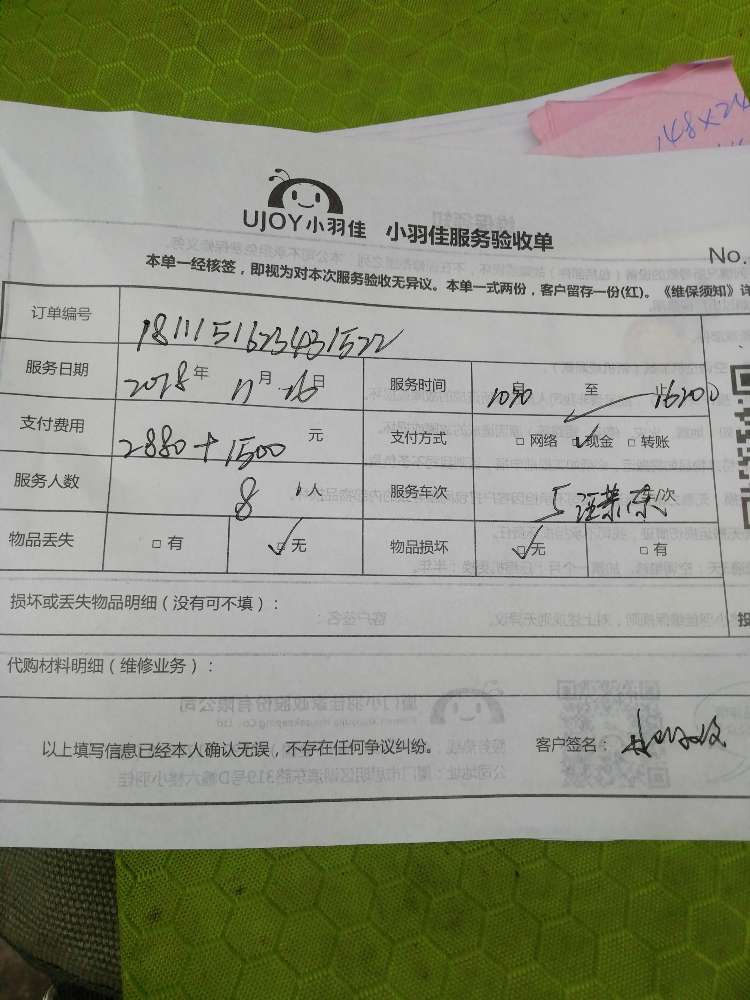 148×24
UJOY小羽佳 小羽佳服务验收单
No.
本单一经核签，即视为对本次服务验收无异议。本单一式两份，客户留存一份(红)。《维保须知》详
订单编号 1811151623431522
服务日期 2018年 11月 16日 服务时间 至 止
支付费用 2880+1500 元 支付方式 □网络 ☑现金 □转账
服务人数 8 人 服务车次 5 /次
物品丢失 □有 ☑无 物品损坏 ☑无 □有
损坏或丢失物品明细（没有可不填）：
投
代购材料明细（维修业务）：
以上填写信息已经本人确认无误，不存在任何争议纠纷。 客户签名：